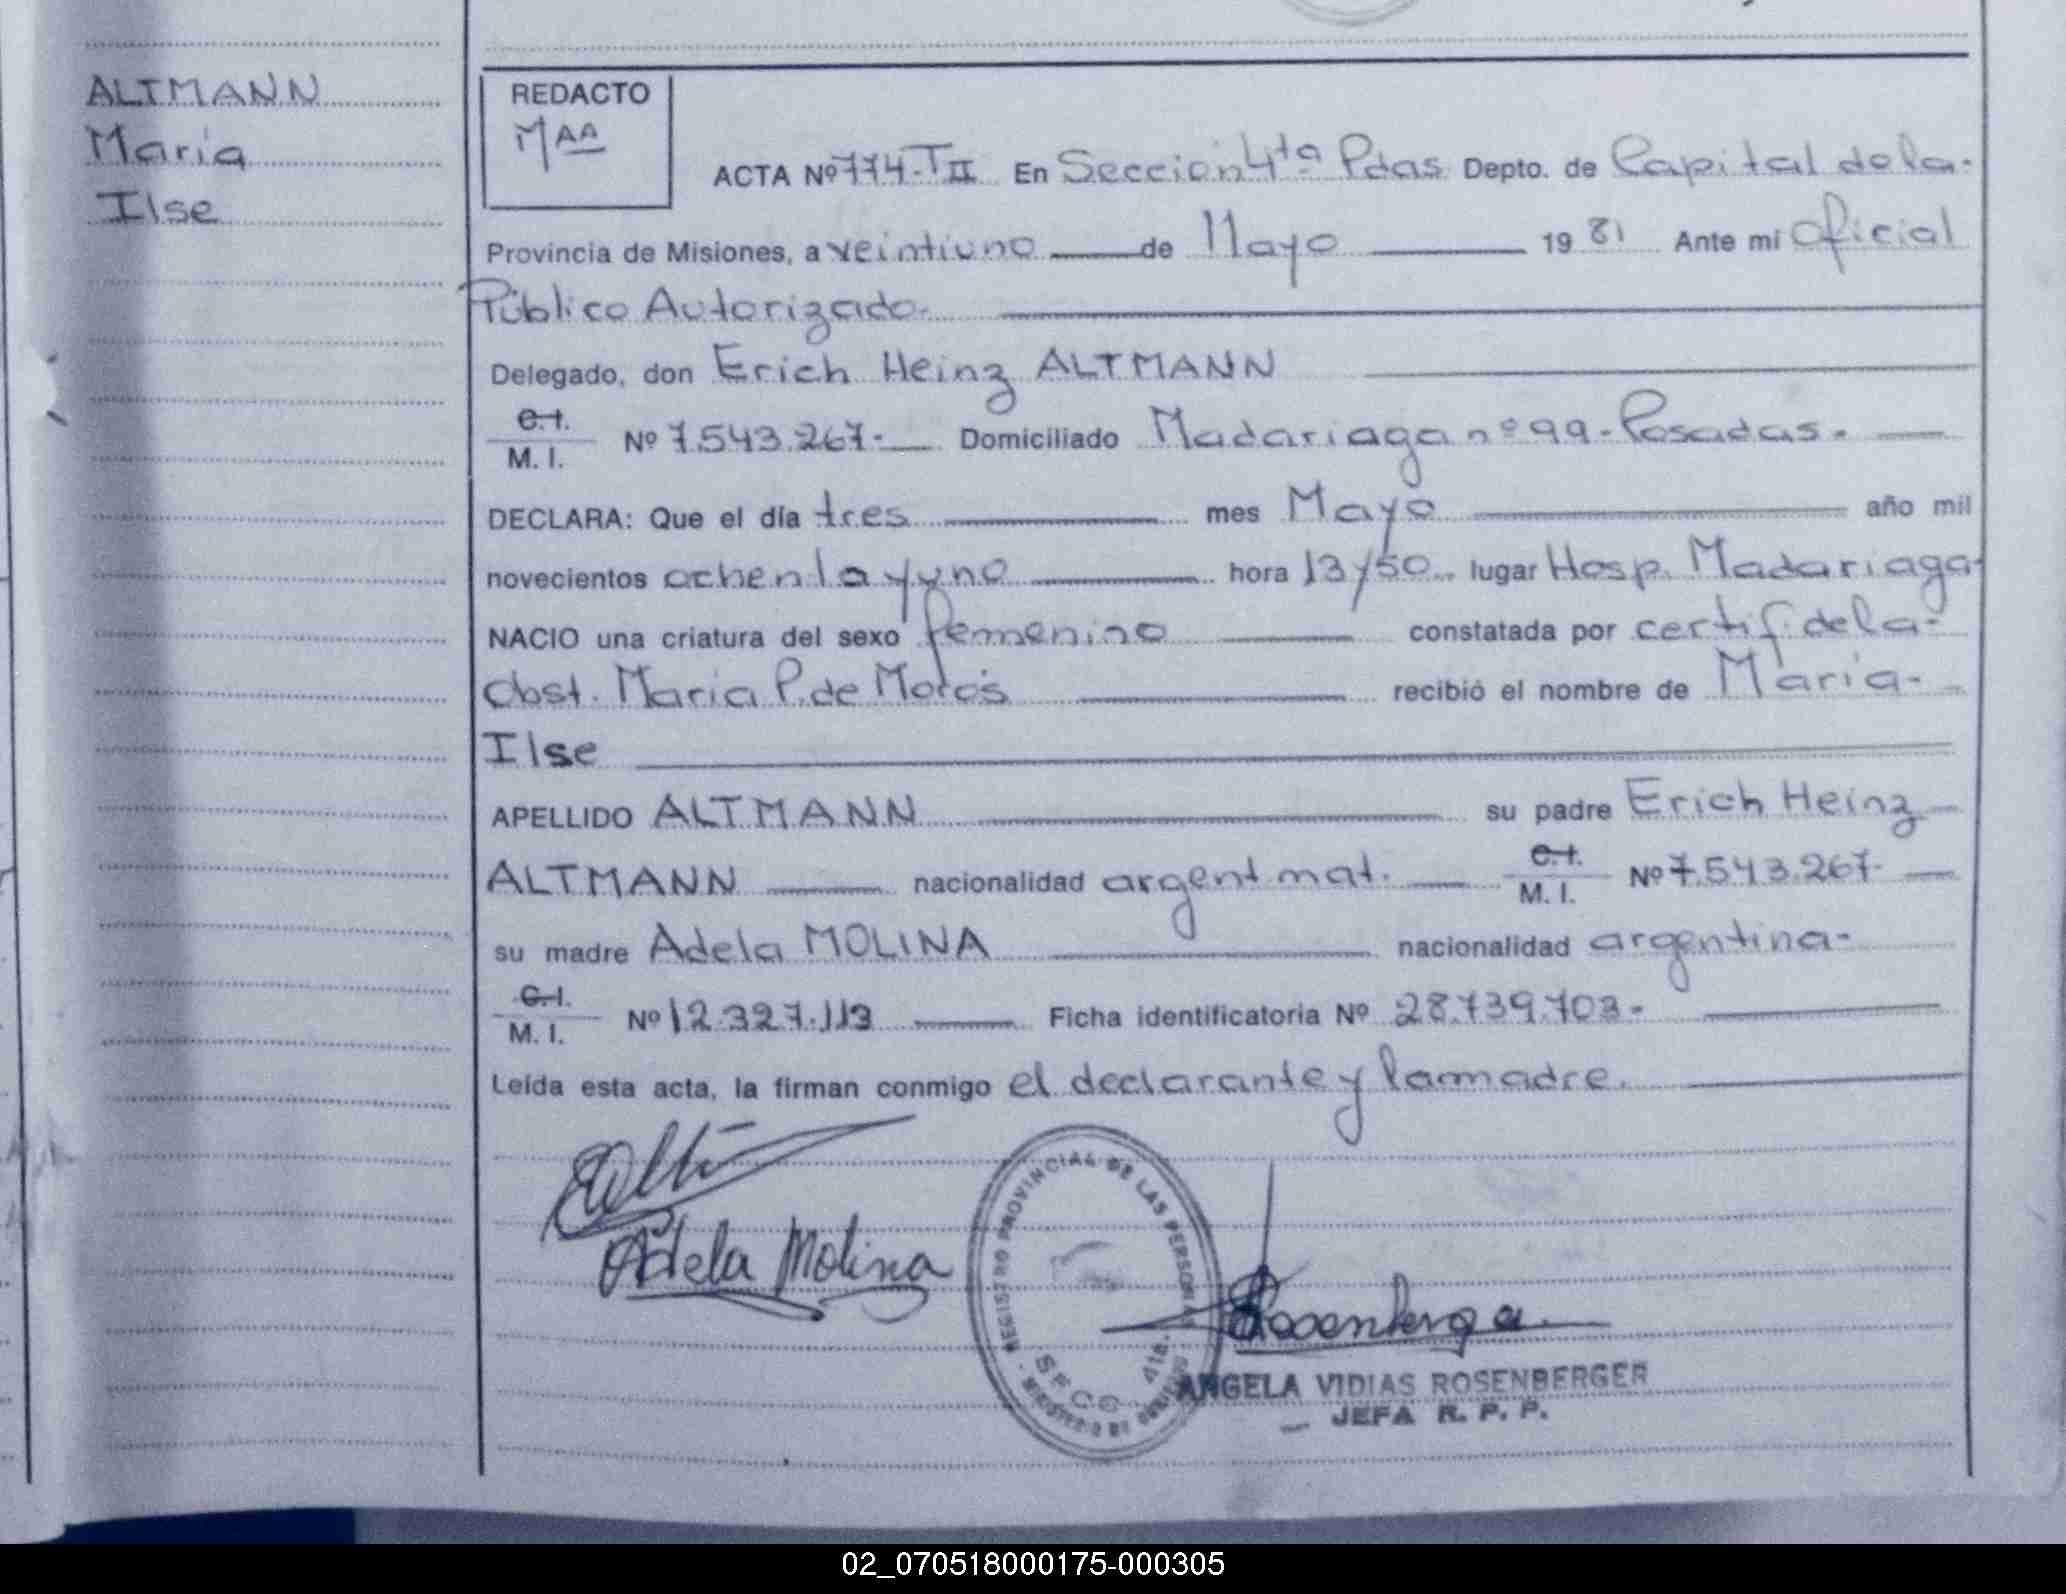 ALTMANN
María
Ilse
REDACTO
MAA
ACTA Nº 774-T II En Sección 4ta. Pdas Depto. de Capital de la-
Provincia de Misiones, a veintiuno de Mayo 19 81 Ante mi oficial
Público Autorizado.
Delegado, don Erich Heinz ALTMANN
C.I.
M. I. Nº 7.543.267- Domiciliado Madariaga nº 99-Posadas.
DECLARA: Que el día tres mes Mayo año mil
novecientos ochenta y uno hora 13/50 lugar Hosp. Madariaga-
NACIO una criatura del sexo femenino constatada por certif. de la-
Obst. María P. de recibió el nombre de María-
Ilse
APELLIDO ALTMANN su padre Erich Heinz
ALTMANN nacionalidad argent mat. C.I.
M. I. Nº 7.543.267-
su madre Adela MOLINA nacionalidad argentina-
C.I.
M. I. Nº 12.327.113 Ficha identificatoria Nº 28.739.703-
Leída esta acta, la firman conmigo el declarante y la madre.
Adela Molina
REGISTRO PROVINCIAL DE LAS PERSONAS
SECC. 4ta.
ANGELA VIDIAS ROSENBERGER
JEFA R. P. P.
02_070518000175-000305